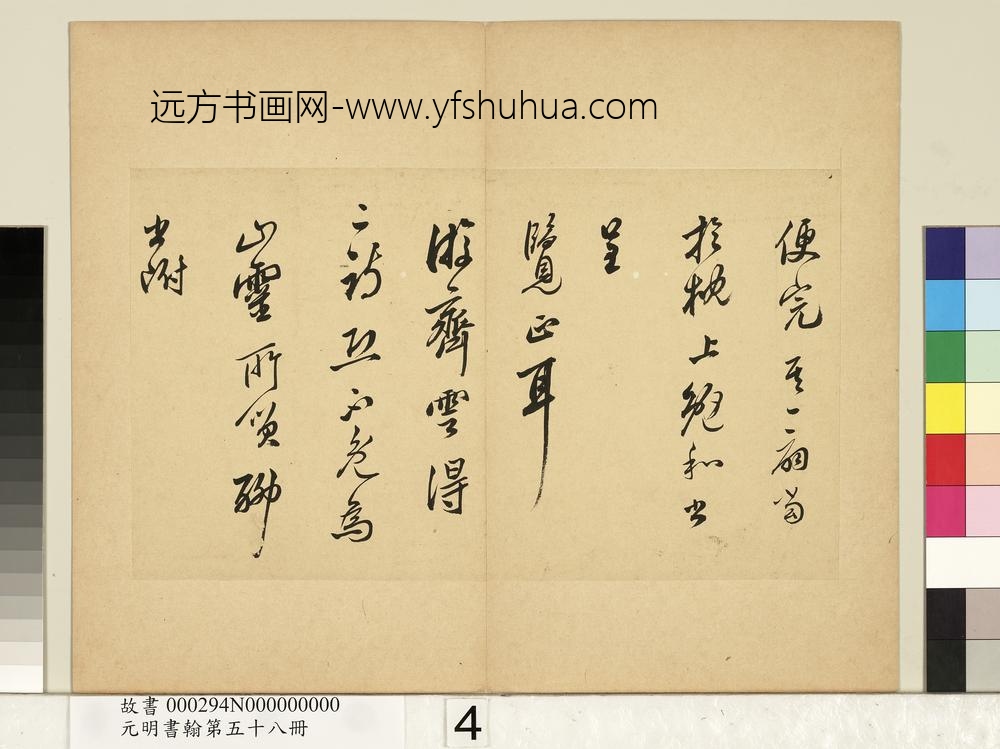 远方书画网-www.yfshuhua.com
便完其二扇當
於枕上繼和書
呈
覽正耳
游齊雲得
二詩恐不免為
山靈所笑聊
書附
故書 000294N000000000
元明書翰第五十八冊
4